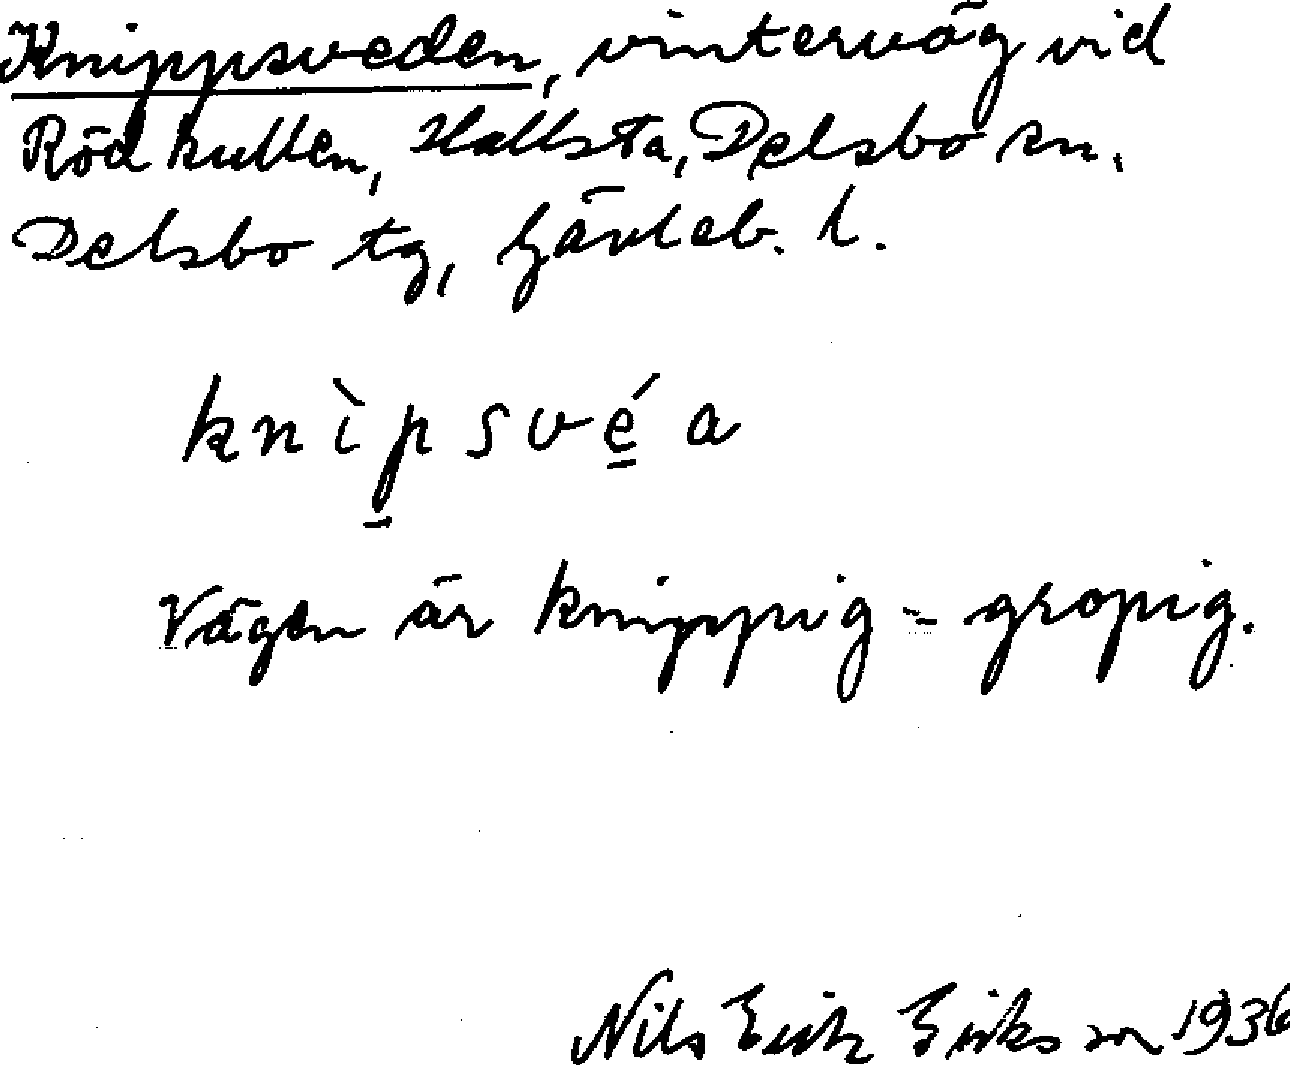 Knippsveden, vinterväg vid
Rödkullen, Hallsta, Delsbo sn.
Delsbo tg, Gävleb. l.
knìpsvéa
Vägen är knippig = gropig.
Nils Erik Eriksson 1936